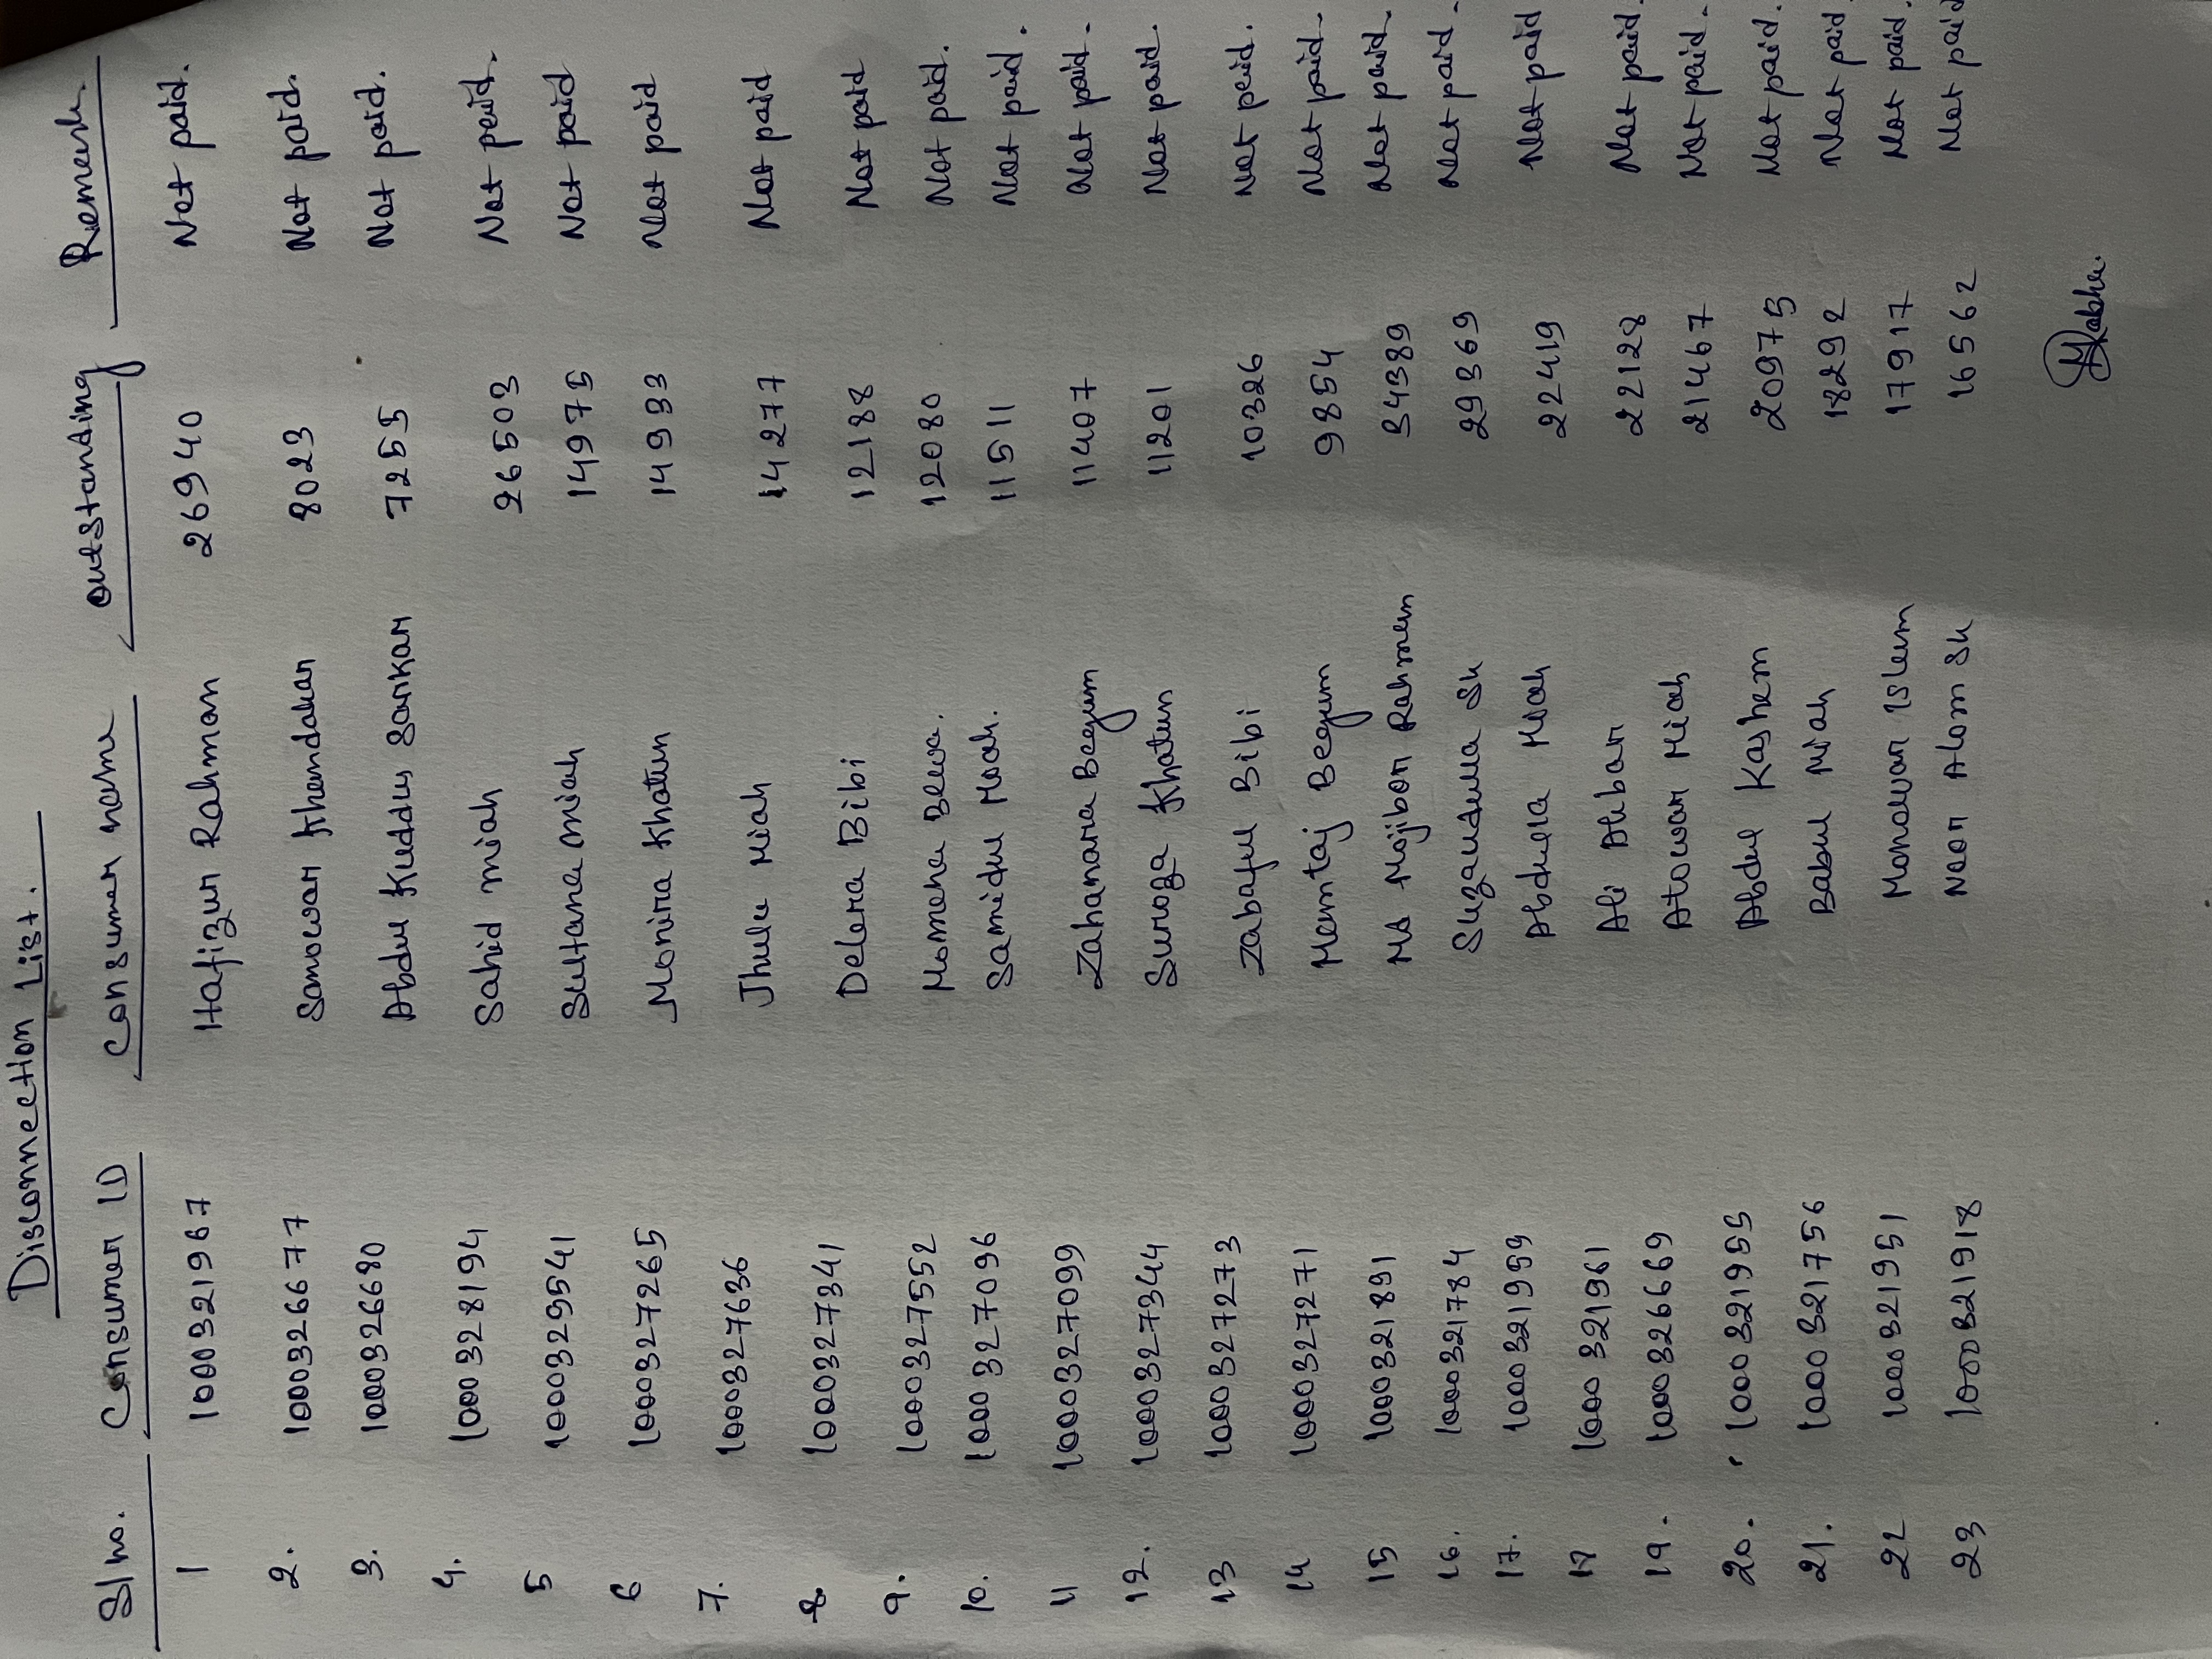 Disconnection List.
Sl no. Consumer ID Consumer name Outstanding Remark
1 100321967 Hafizur Rahman 26940 Not paid.
2. 100326677 Sanowar Khandakar 8023 Not paid.
3. 100326680 Abdul Kuddus Sarkar 7255 Not paid.
4. 100328194 Sahid Miah 26503 Not paid.
5 100329541 Sultana Miah 14975 Not paid
6 100327265 Monira Khatun 14933 Not paid
7. 100327636 Jhulu Miah 14277 Not paid
8 100327341 Delera Bibi 12188 Not paid
9. 100327552 Momena Bewa. 12080 Not paid.
10. 100327096 Samidul Miah. 11511 Not paid.
11 100327099 Zahanara Begum 11407 Not paid.
12. 100327344 Suroga Khatun 11201 Not paid.
13 100327273 Zabaful Bibi 10326 Not paid.
14 100327271 Memtaj Begum 9854 Not paid.
15 100321891 Md Mojibor Rahmen 34389 Not paid.
16. 100321784 Sk 29369 Not paid.
17. 100321959 Abdulla Miah 22419 Not paid
18 100321961 Ali Akbar 22128 Not paid.
19. 100326669 Atowar Miah 21467 Not paid.
20. 100321955 Abdul Kashem 20975 Not paid.
21. 100321756 Babul Miah 18292 Not paid.
22 100321951 Monowar Islam 17917 Not paid.
23 100321918 Noor Alom Sk 16562 Not paid